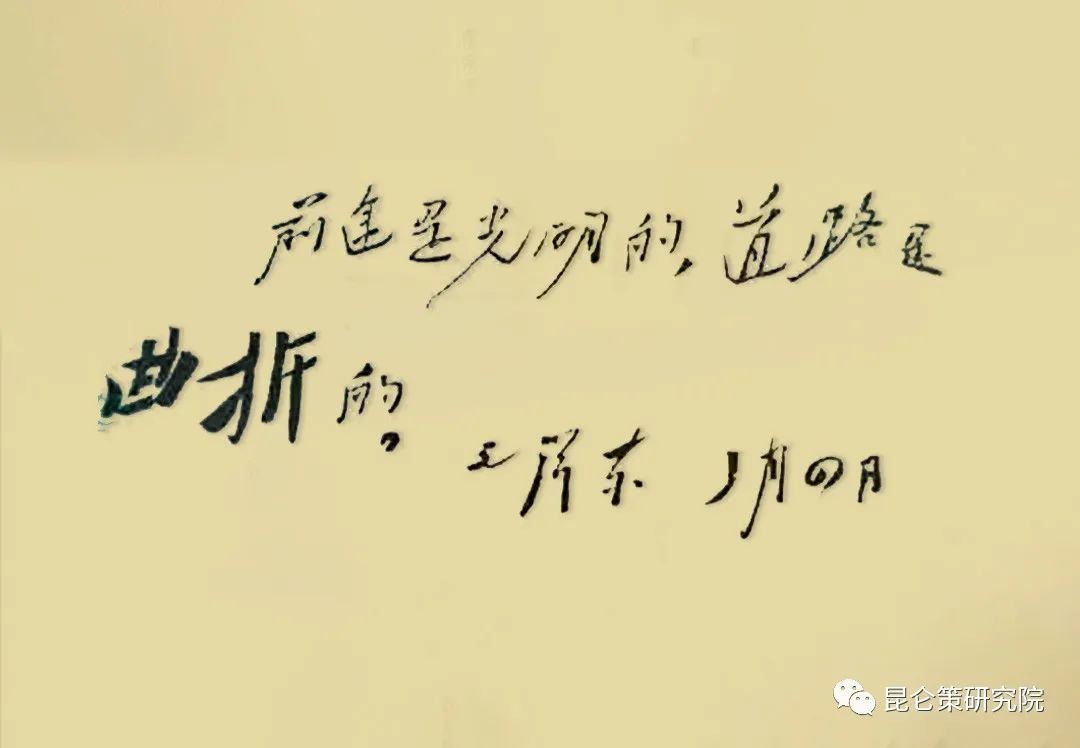 前途是光明的,道路是
曲折的。
毛泽东 月四日
昆仑策研究院